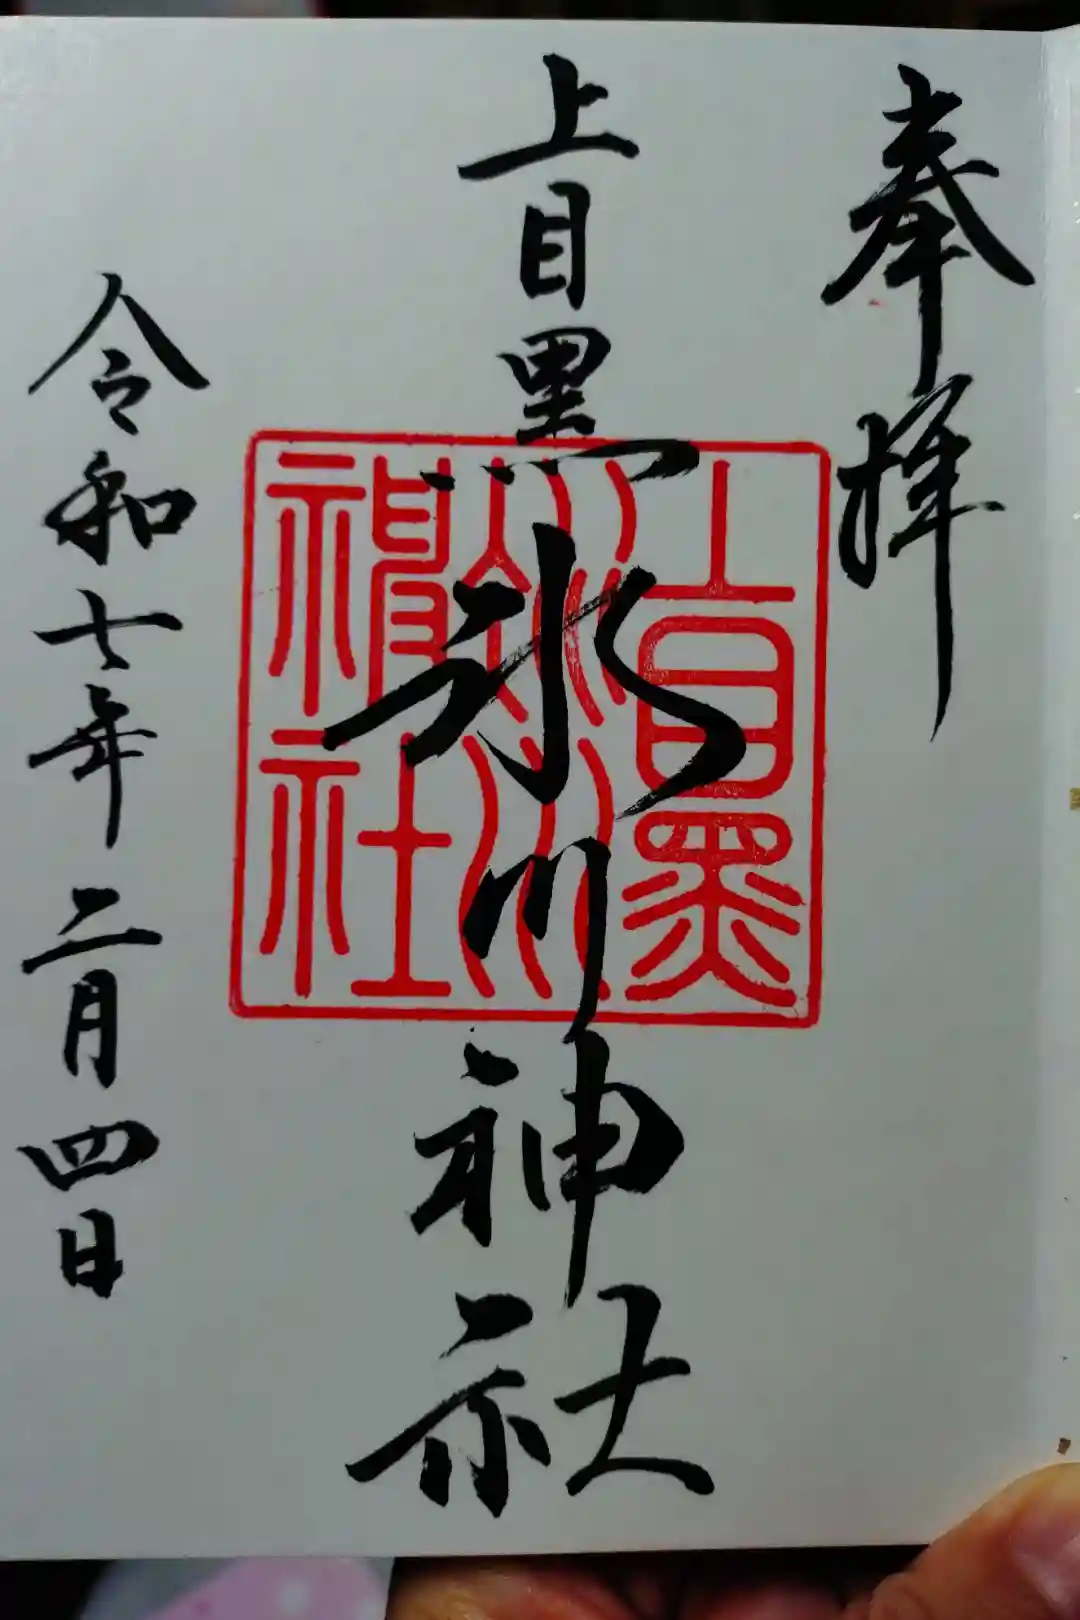 奉拝
上目黒氷川神社
上目黒
氷川
神社
令和七年二月四日